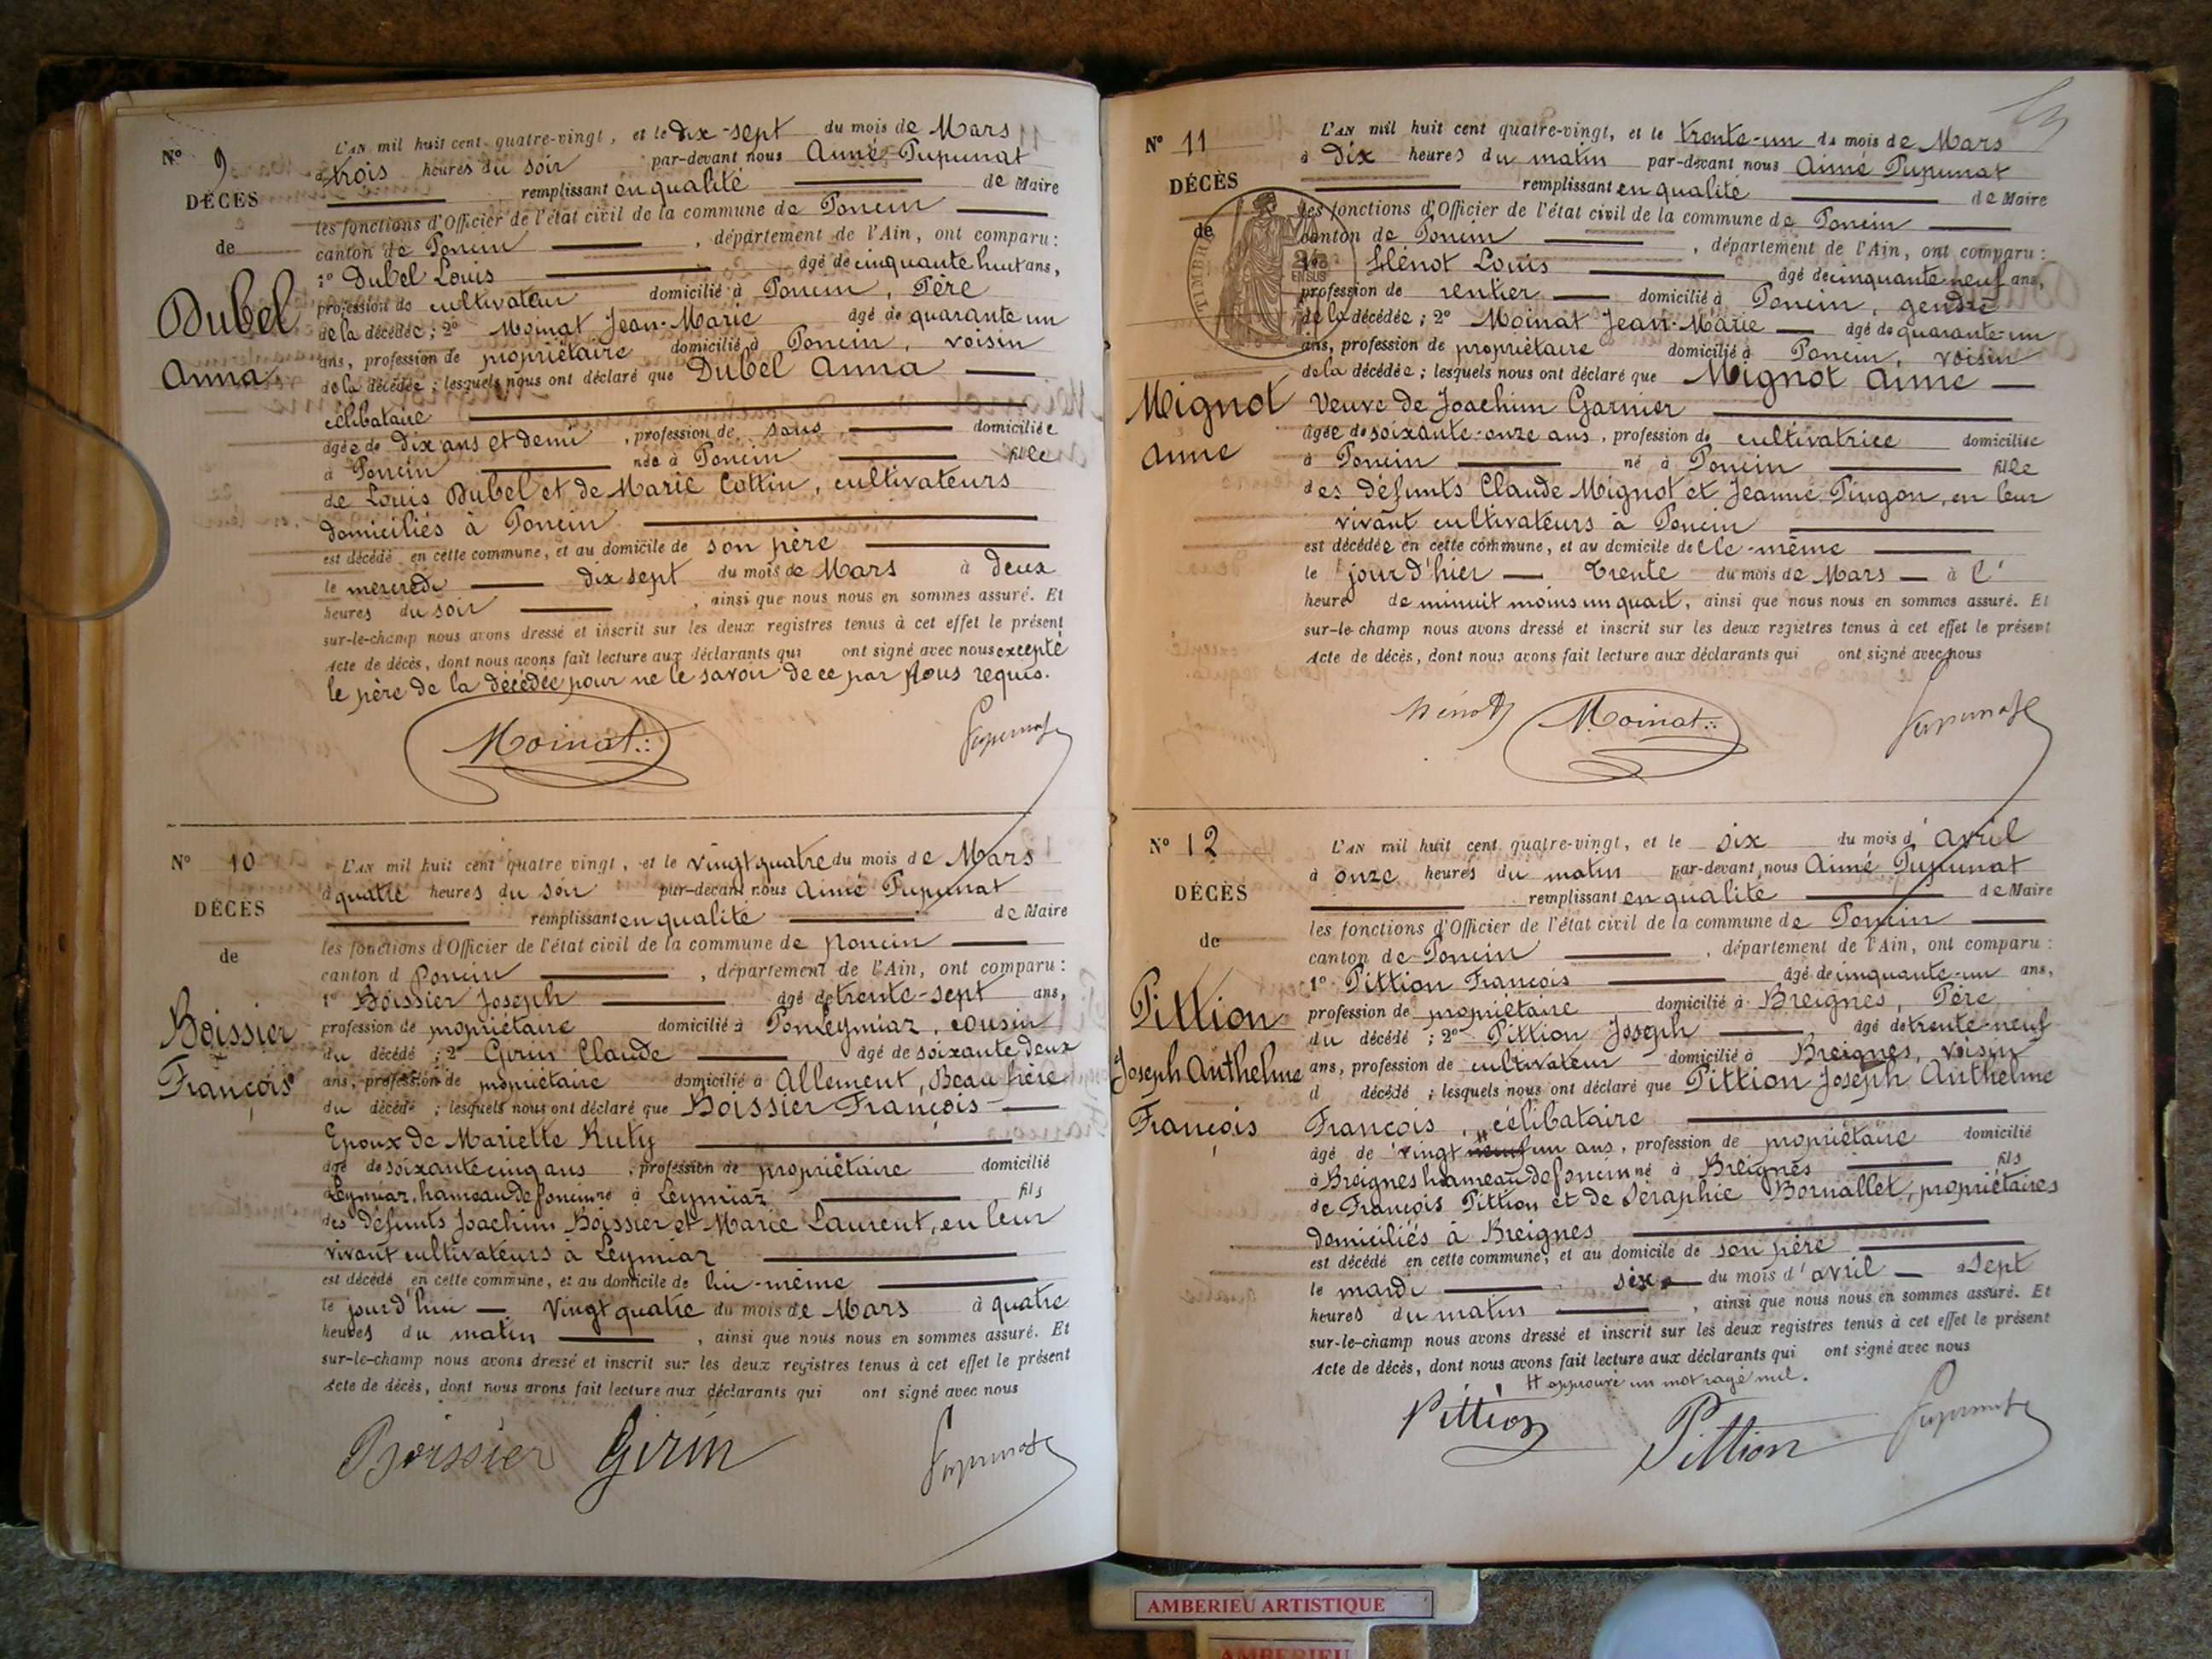 N° 9
DÉCÈS
de
Dubel
Anna
L'AN mil huit cent quatre-vingt, et le dix-sept du mois de Mars
à trois heures du soir par-devant nous Aimé Pupunat
remplissant en qualité de Maire
les fonctions d'Officier de l'état civil de la commune de Poncin
canton de Poncin, département de l'Ain, ont comparu:
1° Dubel Louis âgé de cinquante huit ans,
profession de cultivateur domicilié à Poncin, Père
de la décédée; 2° Moinat Jean-Marie âgé de quarante un
ans, profession de propriétaire domicilié à Poncin, voisin
de la décédée; lesquels nous ont déclaré que Dubel Anna
célibataire
âgée de dix ans et demi, profession de sans domiciliée
à Poncin née à Poncin fille
de Louis Dubel et de Marie Cottin, cultivateurs
domiciliés à Poncin
est décédé en cette commune, et au domicile de son père
le mercredi dix sept du mois de Mars à deux
heures du soir, ainsi que nous nous en sommes assuré. Et
sur-le-champ nous avons dressé et inscrit sur les deux registres tenus à cet effet le présent
Acte de décès, dont nous avons fait lecture aux déclarants qui ont signé avec nous excepté
le père de la décédée pour ne le savoir de ce par nous requis.
Moinat Pupunat
N° 10
DÉCÈS
de
Boissier
François
L'AN mil huit cent quatre vingt, et le vingt quatre du mois de Mars
à quatre heures du soir par-devant nous Aimé Pupunat
remplissant en qualité de Maire
les fonctions d'Officier de l'état civil de la commune de Poncin
canton d Poncin, département de l'Ain, ont comparu:
1° Boissier Joseph âgé de trente-sept ans,
profession de propriétaire domicilié à Leymiaz, cousin
du décédé; 2° Girin Claude âgé de soixante deux
ans, profession de propriétaire domicilié à Allement, Beau frère
du décédé; lesquels nous ont déclaré que Boissier François
Epoux de Mariette Ruty
âgé de soixante cinq ans, profession de propriétaire domicilié
à Leymiaz, hameau de Poncin né à Leymiaz fils
des défunts Joachim Boissier et Marie Laurent, en leur
vivant cultivateurs à Leymiaz
est décédé en cette commune, et au domicile de lui-même
le jourd'hui vingt quatre du mois de Mars à quatre
heures du matin, ainsi que nous nous en sommes assuré. Et
sur-le-champ nous avons dressé et inscrit sur les deux registres tenus à cet effet le présent
Acte de décès, dont nous avons fait lecture aux déclarants qui ont signé avec nous
Boissier Girin Pupunat
N° 11
DÉCÈS
de
TIMBRE
EN SUS
Mignot
Anne
L'AN mil huit cent quatre-vingt, et le trente-un du mois de Mars
à dix heures du matin par-devant nous Aimé Pupunat
remplissant en qualité de Maire
les fonctions d'Officier de l'état civil de la commune de Poncin
canton de Poncin, département de l'Ain, ont comparu:
1° Hénot Louis âgé de cinquante neuf ans,
profession de rentier domicilié à Poncin, gendre
de la décédée; 2° Moinat Jean-Marie âgé de quarante-un
ans, profession de propriétaire domicilié à Poncin, voisin
de la décédée; lesquels nous ont déclaré que Mignot Anne
Veuve de Joachim Garnier
âgée de soixante-onze ans, profession de cultivatrice domiciliée
à Poncin né à Poncin fille
des défunts Claude Mignot et Jeanne Pingon, en leur
vivant cultivateurs à Poncin
est décédée en cette commune, et au domicile de elle-même
le jour d'hier Trente du mois de Mars à l'
heure de minuit moins un quart, ainsi que nous nous en sommes assuré. Et
sur-le-champ nous avons dressé et inscrit sur les deux registres tenus à cet effet le présent
Acte de décès, dont nous avons fait lecture aux déclarants qui ont signé avec nous
Hénot Moinat Pupunat
N° 12
DÉCÈS
de
Pittion
Joseph Anthelme
François
L'AN mil huit cent quatre-vingt, et le six du mois d'avril
à onze heures du matin par-devant nous Aimé Pupunat
remplissant en qualité de Maire
les fonctions d'Officier de l'état civil de la commune de Poncin
canton de Poncin, département de l'Ain, ont comparu:
1° Pittion François âgé de cinquante-un ans,
profession de propriétaire domicilié à Breignes, Père
du décédé; 2° Pittion Joseph âgé de trente-neuf
ans, profession de cultivateur domicilié à Breignes, voisin
d décédé; lesquels nous ont déclaré que Pittion Joseph Anthelme
François, célibataire
âgé de vingt neuf un ans, profession de propriétaire domicilié
à Breignes hameau de Poncin né à Breignes fils
de François Pittion et de Séraphie Bornallet, propriétaires
domiciliés à Breignes
est décédé en cette commune, et au domicile de son père
le mardi six du mois d'avril à sept
heures du matin, ainsi que nous nous en sommes assuré. Et
sur-le-champ nous avons dressé et inscrit sur les deux registres tenus à cet effet le présent
Acte de décès, dont nous avons fait lecture aux déclarants qui ont signé avec nous
# approuvé un mot rayé nul.
Pittion Pittion Pupunat
AMBERIEU ARTISTIQUE
AMBERIEU